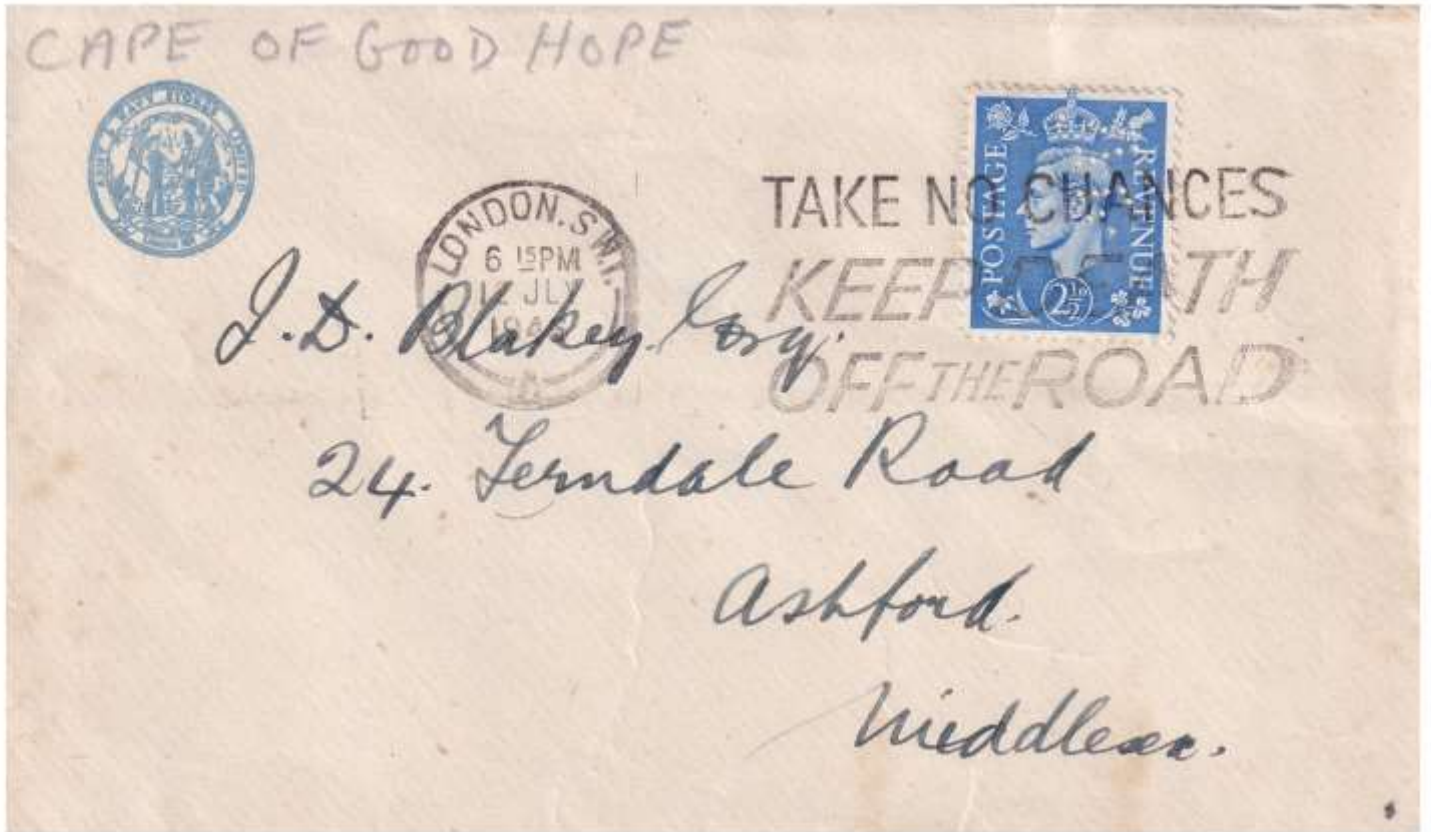 CAPE OF GOOD HOPE
ARMY & NAVY STORES LIMITED
LONDON. S.W.1.
6 15 PM
12 JLY
A
TAKE NO CHANCES
KEEP DEATH
OFF THE ROAD
POSTAGE
REVENUE
2½D
J. D. Blakey Esq.
24. Ferndale Road
Ashford.
Middlesex.